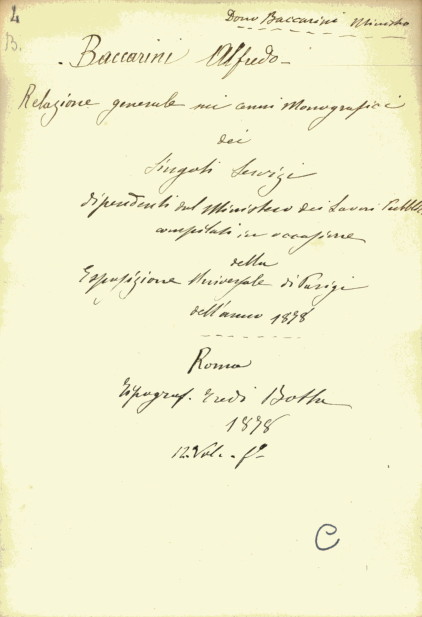 L
Dono Baccarini Ministro
B.
Baccarini Alfredo
Relazione generale sui cenni Monografici
dei
Singoli Servizi
dipendenti dal Ministero dei Lavori Pubblici
compilati in occasione
della
Esposizione Universale di Parigi
dell'anno 1878
Roma
Tipograf. Eredi Botta
1878
12. Vol. - f°-
C